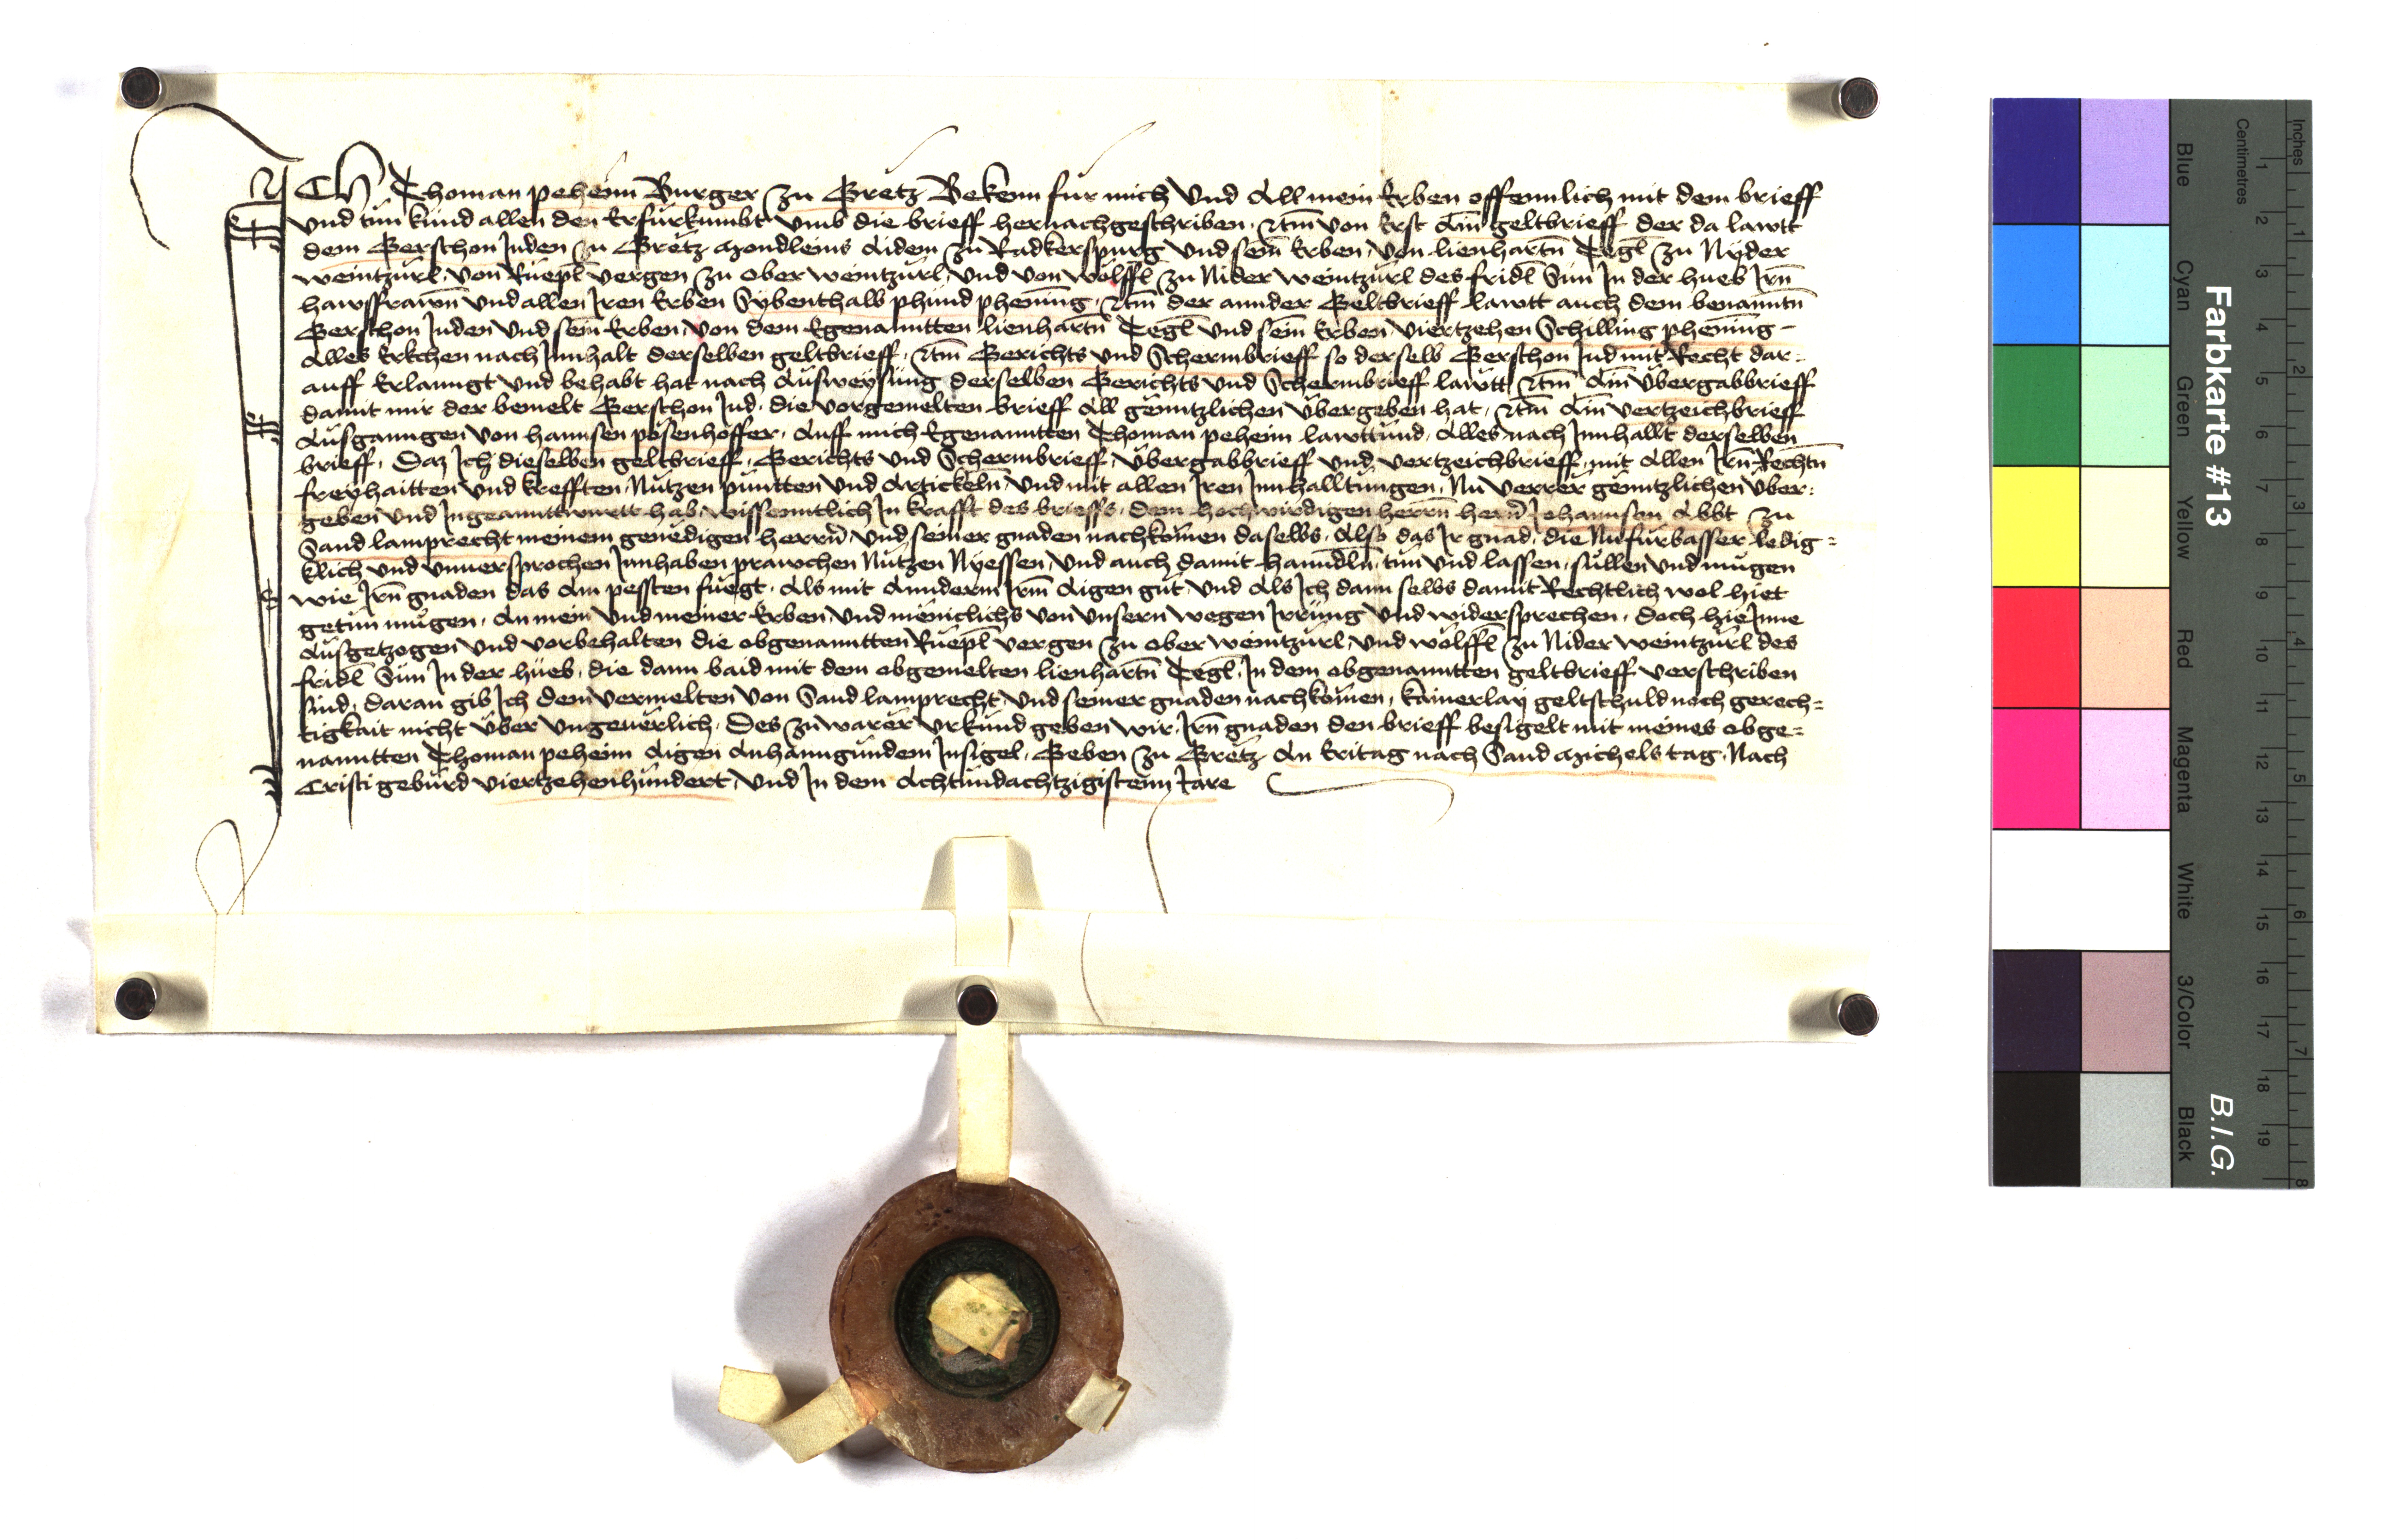 ICH Thoman peheim Burger zu Gretz Bekenn für mich Vnd All mein Erben offennlich mit dem brieff
Vnd tun kund allen den Erfürkumbt Vmb die brieff hernachgeschriben, Item von Erst Ain geltbrieff der da lawtt
dem Gerschon Juden zu Gretz Mondleins Aidem zu Radkerspurg Vnd sein̄ Erben, Von lienhartn̄ Tegl zu Nyder
weintzürl, Von Rüepl Vergen zu ober weintzürl, Vnd von wölffl zu Nider weintzürl des fridl Sun In der hueb Irn̄
hawsfrawn̄ Vnd allen Iren Erben Sybenthalb phund phening, Item der annder Geltbrieff lawtt auch dem benantn̄
Gerschon Juden Vnd sein̄ Erben, Von dem Egenanntten lienhartn̄ Tegl Vnd sein̄ Erben, Viertzehen Schilling phening
Alles Erkchen nach Innhalt derselben geltbrieff, Item Gerichts Vnd Schermbrieff so derselb Gerschon Jud mit Recht dar-
auff Erlanngt Vnd behabt hat nach Ausweysung derselben Gerichts Vnd Schermbrieff lawtt, Item Ain Übergabbrieff
damit mir der bemelt Gerschon Jud, die Vorgemelten brieff All genntzlichen Übergeben hat, Item Ain Vertzeichbrieff
Ausganngen Von hannsen posenhoffer, Auff mich Egenanntten Thoman peheim lawttund, Alles nach Innhallt derselben
brieff, Daz Ich dieselben geltbrieff, Gerichts Vnd Schermbrieff, Übergabbrieff Vnd Vertzeichbrieff, mit Allen Irn̄ Rechtn̄
freyhaitten Vnd krefften, Nutzen püntten Vnd Artickeln̄, Vnd mit allen Iren Innhalltungen, Nu Verrer genntzlichen Über-
geben Vnd Ingeanttwurtt hab, wissenntlich In krafft des brieffs, dem hochwirdigen herrn̄ hern̄ Johannsen Abbt zu
Sand lamprecht meinem genedigen herrn̄, Vnd seiner gnaden nachkomen daselbs, Also das Ir gnad, die Nufürbasser ledig-
klich Vnd Vnuersprochen Innhaben prawchen Nützen Nyessen, Vnd auch damit hanndln̄, tun Vnd lassen, süllen Vnd mügen
wie Irn̄ gnaden das Am pessten fuegt, Als mit Annderm Irm̄ Aigen gut, Vnd Als Ich dann selbs damit Rechtlich wol hiet
getun mugen, An mein Vnd meiner Erben, Vnd meniclichs Von Vnsern wegen Irrung Vnd widersprechen, Doch hie Inne
Ausgetzogen Vnd Vorbehalten die obgenanntten Rüepl Vergen zu ober weintzürl, Vnd wölffl zu Nider weintzürl des
fridl Sun In der hueb, die dann baid mit dem obgemelten lienhartn̄ Tegl, In dem obgenanntten geltbrieff Verschriben
sind, Daran gib Ich dem Vermelten Von Sand lamprecht, Vnd seiner gnaden nachkomen, kainerlay geltschuld noch gerech-
tigkait nicht Über Vngeuerlich. Des zu warer Vrkund geben wir, Irn̄ gnaden den brieff besigelt mit meines obge-
nanntten Thoman peheim Aigen Anhanngundem Insigel, Geben zu Gretz An Eritag nach Sand Michels tag, Nach
Cristi geburd Viertzehenhundert, Vnd In dem Achtundachtzigistenn Iare
Inches
Centimetres
1 2 3 4 5 6 7 8
1 2 3 4 5 6 7 8 9 10 11 12 13 14 15 16 17 18 19
Farbkarte #13
B.I.G.
Blue
Cyan
Green
Yellow
Red
Magenta
White
3/Color
Black